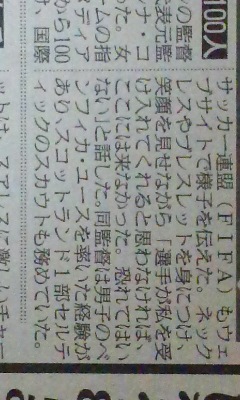 100人
の監督
ナ・コ
った。女
ームの指
ディア
から100
国際
サッカー連盟(FIFA)もウェ
ブサイトで様子を伝えた。ネック
レスやブレスレットを身につけ
笑顔を見せながら「選手が私を受
け入れてくれると思わなければ、
ここには来なかった。恐れてはい
ない」と話した。同監督は男子のベ
ンフィカ・ユースを率いた経験が
あり、スコットランド1部セルテ
ィックのスカウトも務めていた。
ットは、スアレスに激しいチャー